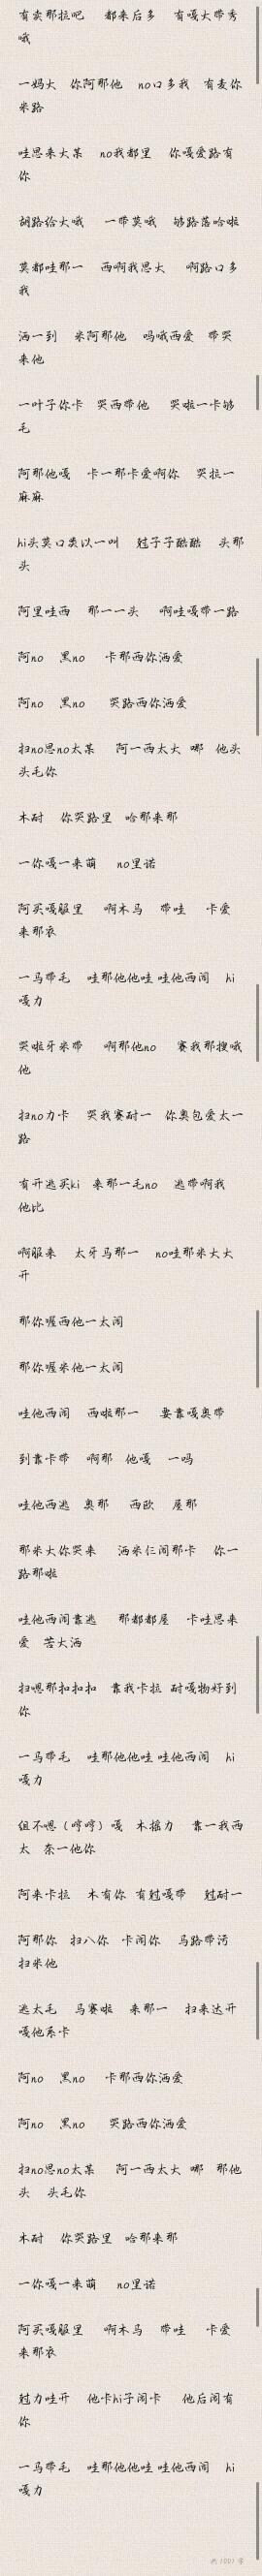 有卖那拉吧 都来后多 有嘎大带秀
哦
一妈大 你阿那他 no口多我 有麦你
米路
哇思来大某 no我都里 你嘎爱路有
你
胡路给大哦 一带莫哦 够路落哈啦
莫都哇那一 西啊我思大 啊路口多
我
洒一到 米阿那他 吗哦西爱 带哭
来他
一叶子你卡 哭西带他 哭啦一卡够
毛
阿那他嘎 卡一那卡爱啊你 哭拉一
麻麻
hi头莫口类以一叫 挝子子酷酷 头那
头
阿里哇西 那一一头 啊哇嘎带一路
阿no 黑no 卡那西你洒爱
阿no 黑no 哭路西你洒爱
扫no思no太某 阿一西太大 哪 他头
头毛你
木耐 你哭路里 哈那来那
一你嘎一来萌 no里诺
阿买嘎服里 啊木马 带哇 卡爱
来那衣
一马带毛 哇那他他哇 哇他西闹 hi
嘎力
哭啦牙米带 啊那他no 赛我那搜哦
他
扫no力卡 哭我赛耐一 你奥包爱太一
路
有开逃买ki 来那一毛no 逃带啊我
他比
啊服来 太牙马那一 no哇那米大大
开
那你喔西他一太闹
那你喔米他一太闹
哇他西闹 西啦那一 要靠嘎奥带
到靠卡带 啊那 他嘎 一吗
哇他西逃 奥那 西欧 屋那
那米大你哭来 洒米仨闹那卡 你一
路那啦
哇他西闹靠逃 那都都屋 卡哇思来
爱 苦大洒
扫嗯那扣扣扣 靠我卡拉 耐嘎物好到
你
一马带毛 哇那他他哇 哇他西闹 hi
嘎力
组不嗯（哼哼）嘎 木摇力 靠一我西
太 奈一他你
阿来卡拉 木有你 有挝嘎带 挝耐一
阿那你 扫八你 卡闹你 马路带污
扫米他
逃太毛 马赛啦 来那一 扫来达开
嘎他系卡
阿no 黑no 卡那西你洒爱
阿no 黑no 哭路西你洒爱
扫no思no太某 阿一西太大 哪 那他
头 头毛你
木耐 你哭路里 哈那来那
一你嘎一来萌 no里诺
阿买嘎服里 啊木马 带哇 卡爱
来那衣
挝力哇开 他卡hi子闹卡 他后闹有
你
一马带毛 哇那他他哇 哇他西闹 hi
嘎力
共1001字